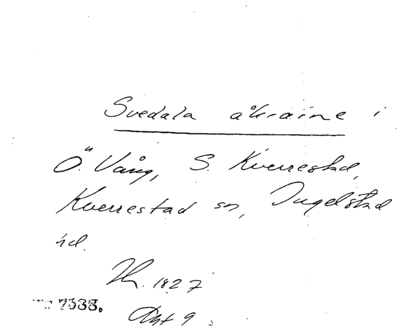 Svedala åkraine i
Ö. Vång, S. Kverrestad,
Kverrestad sn, Ingelstad
hd.
1827
7388.
Akt 9